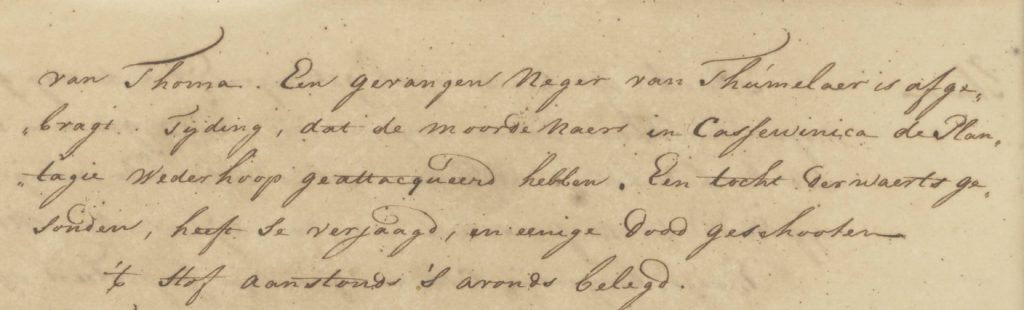 van Thoma. Een gevangen Neger van Thúmelaer is afge„
„bragt. Tyding, dat de moordenaers in Cassewinica de Plan„
„tagie Wederhoop geattacqueerd hebben. Een tocht derwaerts ge„
sonden, heeft se verjaagd, en eenige dood geschooten
't Hof aanstonds 's avonds belegd.